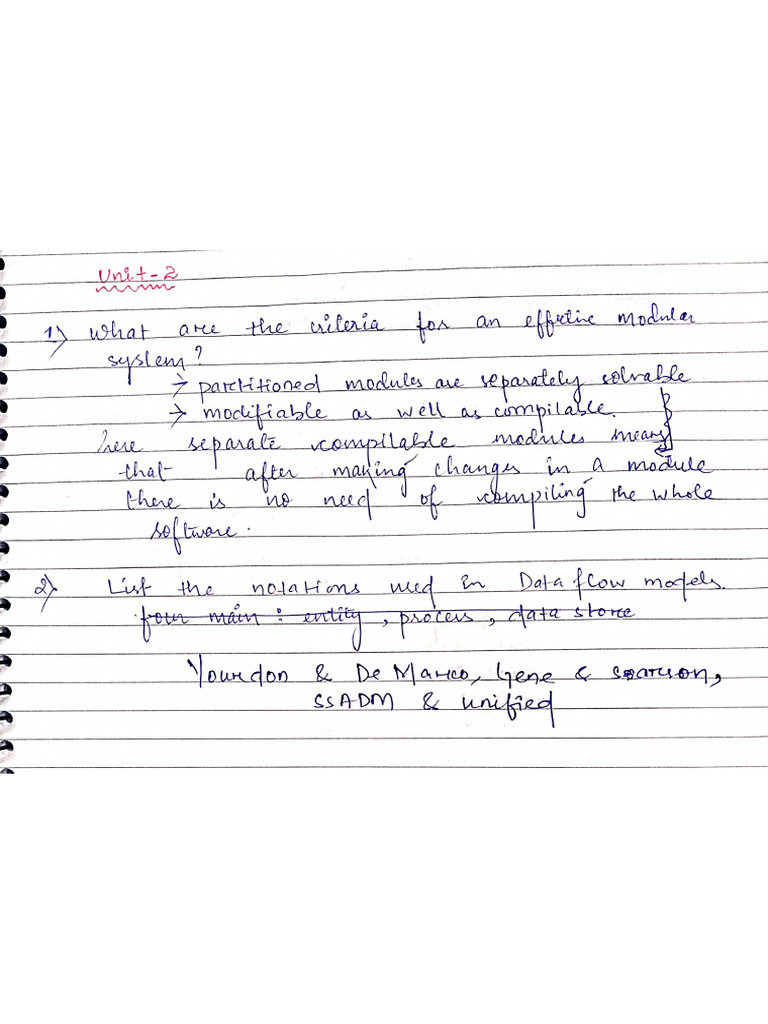 Unit-2
1) What are the criteria for an effective modular
system?
→ partitioned modules are separately solvable
→ modifiable as well as compilable.
here separate compilable modules means
that after making changes in a module
there is no need of compiling the whole
software.
2) List the notations used in Data flow models.
four main : entity, process, data store
Yourdon & De Marco, Gene &
SSADM & unified